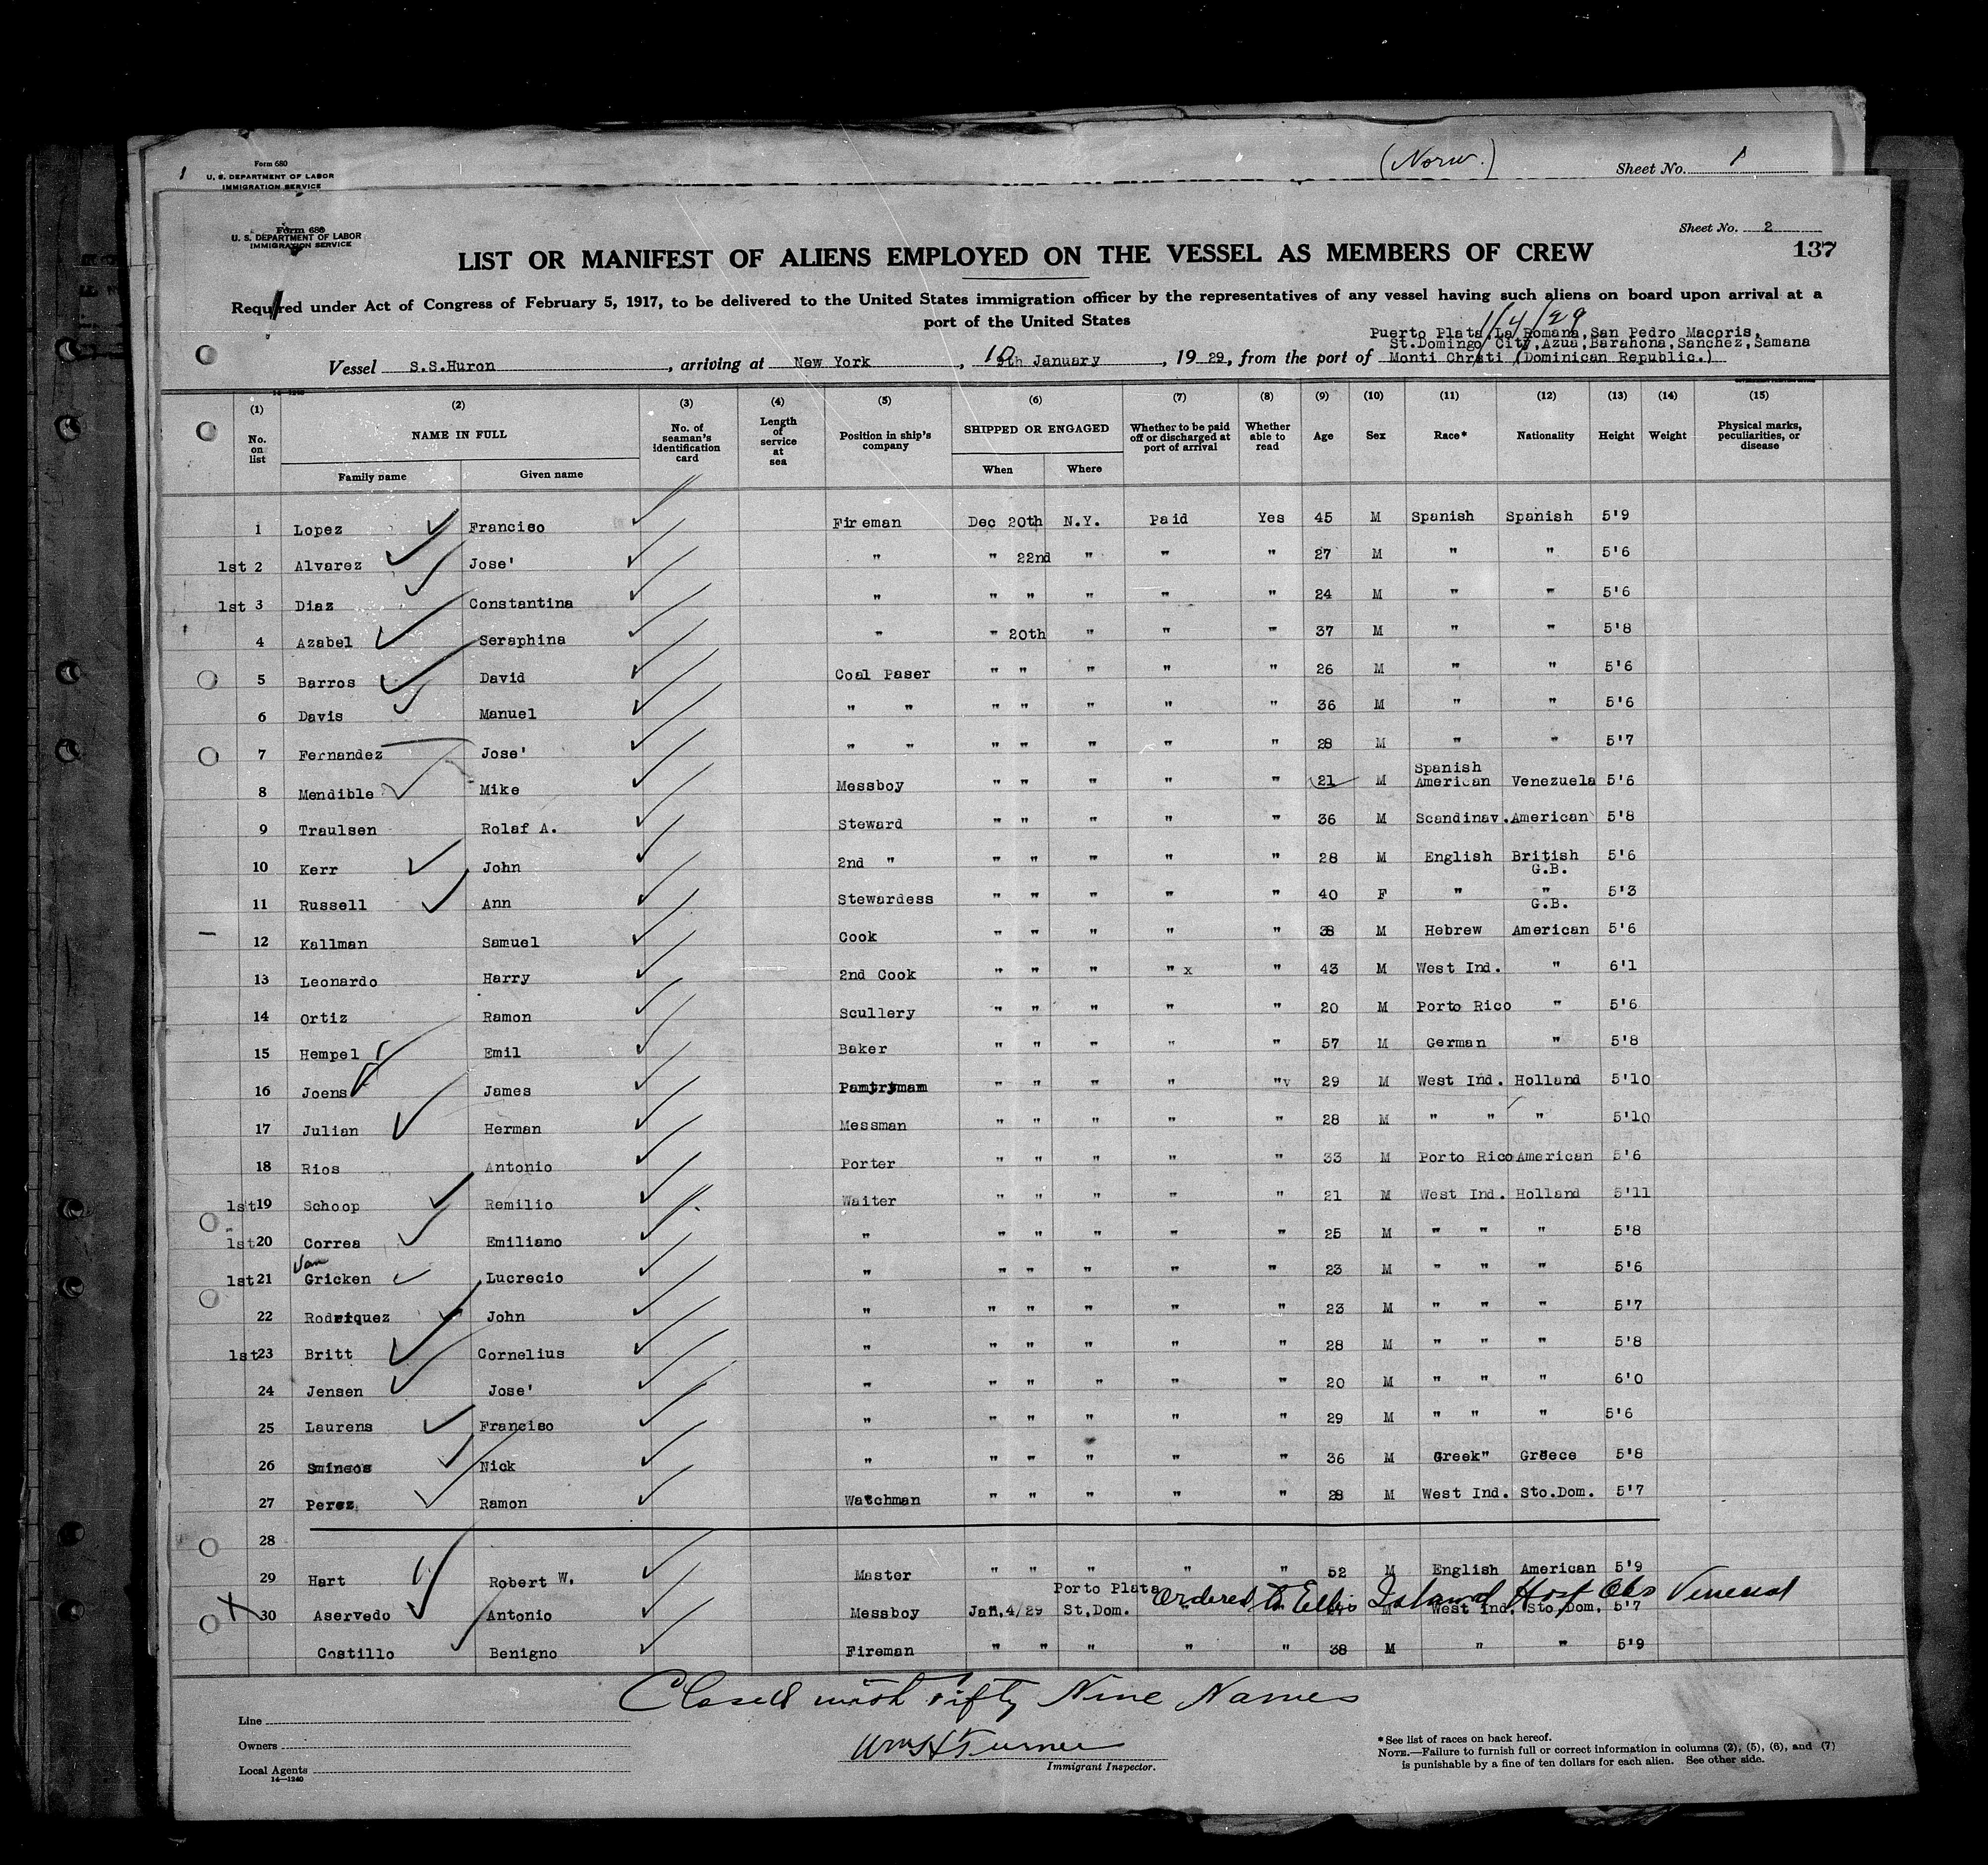 1
Form 680
U. S. DEPARTMENT OF LABOR
IMMIGRATION SERVICE
(Norw.)
Sheet No. 1
Form 680
U. S. DEPARTMENT OF LABOR
IMMIGRATION SERVICE
Sheet No. 2
137
LIST OR MANIFEST OF ALIENS EMPLOYED ON THE VESSEL AS MEMBERS OF CREW
Required under Act of Congress of February 5, 1917, to be delivered to the United States immigration officer by the representatives of any vessel having such aliens on board upon arrival at a
port of the United States
1/4/29
Puerto Plata La Romana, San Pedro Macoris,
St.Domingo City, Azua, Barahona, Sanchez, Samana
Vessel S.S.Huron, arriving at New York, 10th January, 19 29, from the port of Monti Christi (Dominican Republic.)
(1) (2) (3) (4) (5) (6) (7) (8) (9) (10) (11) (12) (13) (14) (15)
No. on list NAME IN FULL Family name Given name No. of seaman's identification card Length of service at sea Position in ship's company SHIPPED OR ENGAGED When Where Whether to be paid off or discharged at port of arrival Whether able to read Age Sex Race* Nationality Height Weight Physical marks, peculiarities, or disease
1 Lopez Franciso Fireman Dec 20th N.Y. Paid Yes 45 M Spanish Spanish 5'9
1st 2 Alvarez Jose' " " 22nd " " " 27 M " " 5'6
1st 3 Diaz Constantina " " " " " " 24 M " " 5'6
4 Azabel Seraphina " " 20th " " " 37 M " " 5'8
5 Barros David Coal Paser " " " " " 26 M " " 5'6
6 Davis Manuel " " " " " " " 36 M " " 5'6
7 Fernandez Jose' " " " " " " " 28 M " " 5'7
8 Mendible Mike Messboy " " " " " 21 M Spanish American Venezuela 5'6
9 Traulsen Rolaf A. Steward " " " " " 36 M Scandinav. American 5'8
10 Kerr John 2nd " " " " " " 28 M English British G.B. 5'6
11 Russell Ann Stewardess " " " " " 40 F " " G.B. 5'3
12 Kallman Samuel Cook " " " " " 38 M Hebrew American 5'6
13 Leonardo Harry 2nd Cook " " " " x " 43 M West Ind. " 6'1
14 Ortiz Ramon Scullery " " " " " 20 M Porto Rico " 5'6
15 Hempel Emil Baker " " " " " 57 M German " 5'8
16 Joens James Pantryman " " " " "v 29 M West Ind. Holland 5'10
17 Julian Herman Messman " " " " " 28 M " " " 5'10
18 Rios Antonio Porter " " " " " 33 M Porto Rico American 5'6
1st 19 Schoop Remilio Waiter " " " " " 21 M West Ind. Holland 5'11
1st 20 Correa Emiliano " " " " " " 25 M " " " 5'8
1st 21 Van Gricken Lucrecio " " " " " " 23 M " " " 5'6
22 Rodriquez John " " " " " " 23 M " " " 5'7
1st 23 Britt Cornelius " " " " " " 28 M " " " 5'8
24 Jensen Jose' " " " " " " 20 M " " " 6'0
25 Laurens Franciso " " " " " " 29 M " " " 5'6
26 Smineos Nick " " " " " " 36 M Greek" Greece 5'8
27 Perez Ramon Watchman " " " " " 28 M West Ind. Sto.Dom. 5'7
28
29 Hart Robert W. Master " " " " " 52 M English American 5'9
X 30 Aservedo Antonio Messboy Jan.4/29 Porto Plata St.Dom. " " M West Ind. Sto.Dom. 5'7
Ordered to Ellis Island Hosp Obs Venereal
Costillo Benigno Fireman " " " " " 38 M " " 5'9
Closed with Fifty Nine Names
Line
Owners
Local Agents
14—1240
Wm H Turner
Immigrant Inspector.
*See list of races on back hereof.
NOTE.—Failure to furnish full or correct information in columns (2), (5), (6), and (7)
is punishable by a fine of ten dollars for each alien. See other side.